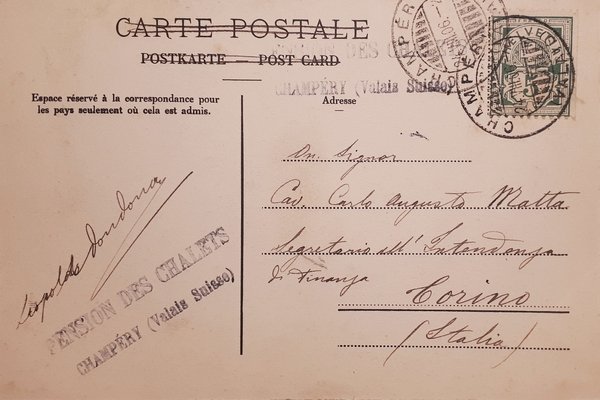 CARTE POSTALE
POSTKARTE — POST CARD
PENSION DES CHALETS
CHAMPÉRY (Valais Suisse)
CHAMPÉRY
CHAMPÉRY
Espace réservé à la correspondance pour
les pays seulement où cela est admis.
Adresse
Signor
Cav. Carlo Augusto Matta
Segretario all' Intendenza
di Finanza
Torino
(Italia)
Leopoldo
PENSION DES CHALETS
CHAMPÉRY (Valais Suisse)